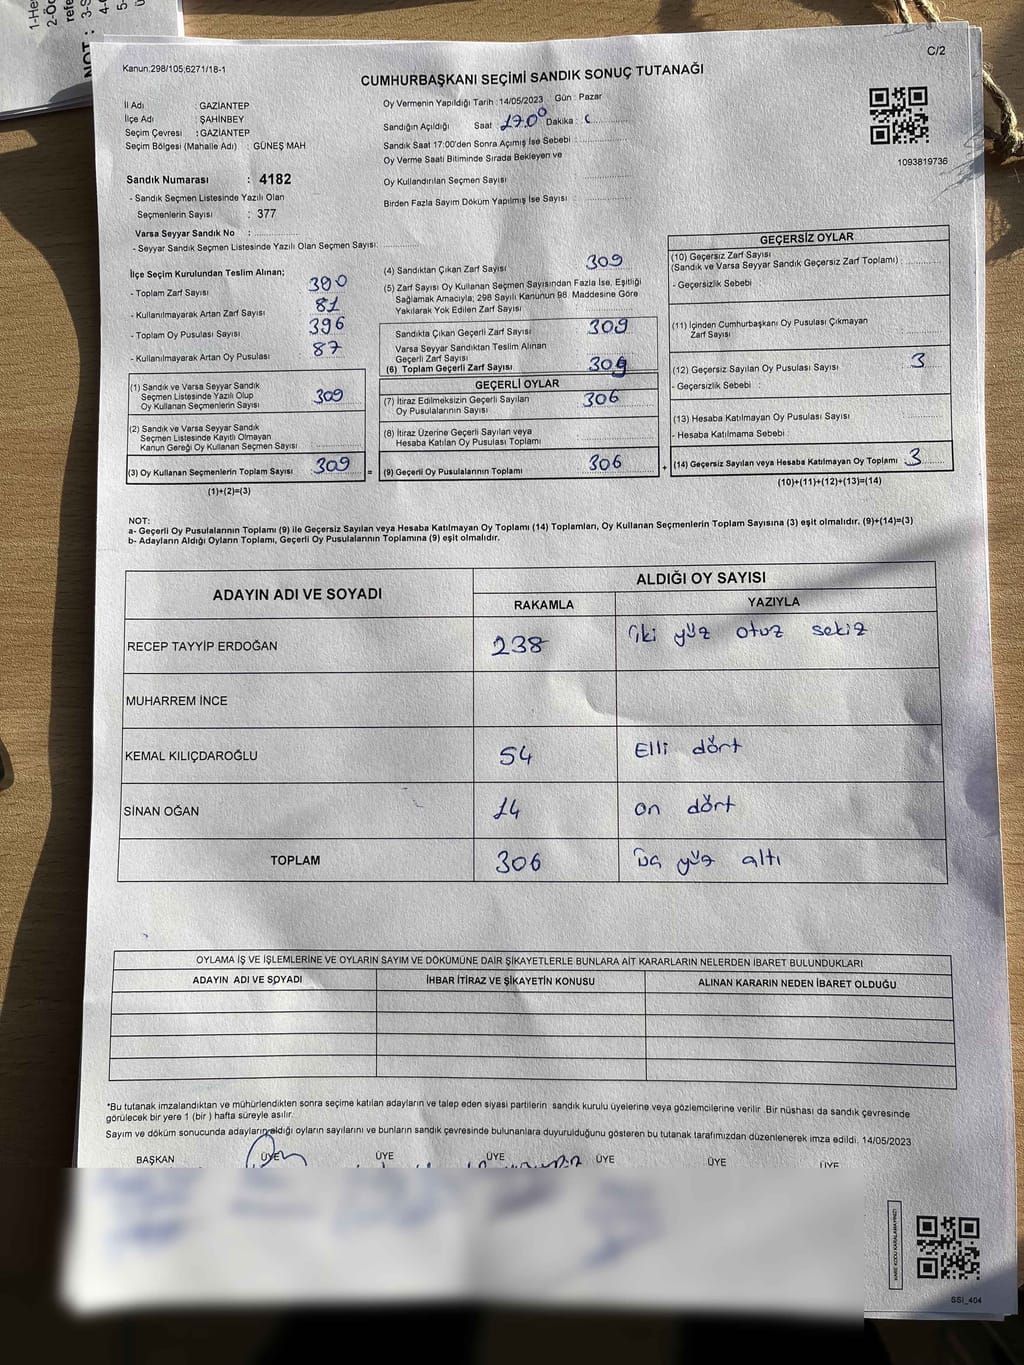 1-He
2-Öd
refe
NOT : 3-S
4-
5-
C/2
Kanun:298/105;6271/18-1
CUMHURBAŞKANI SEÇİMİ SANDIK SONUÇ TUTANAĞI
İl Adı : GAZİANTEP
İlçe Adı : ŞAHİNBEY
Seçim Çevresi : GAZİANTEP
Seçim Bölgesi (Mahalle Adı) : GÜNEŞ MAH
Sandık Numarası : 4182
- Sandık Seçmen Listesinde Yazılı Olan
Seçmenlerin Sayısı : 377
Varsa Seyyar Sandık No :
- Seyyar Sandık Seçmen Listesinde Yazılı Olan Seçmen Sayısı:
Oy Vermenin Yapıldığı Tarih : 14/05/2023 Gün : Pazar
Sandığın Açıldığı Saat 17.00 Dakika :
Sandık Saat 17:00'den Sonra Açımış İse Sebebi :
Oy Verme Saati Bitiminde Sırada Bekleyen ve
Oy Kullandırılan Seçmen Sayısı :
Birden Fazla Sayım Döküm Yapılmış İse Sayısı :
1093819736
İlçe Seçim Kurulundan Teslim Alınan;
- Toplam Zarf Sayısı 390
- Kullanılmayarak Artan Zarf Sayısı 81
- Toplam Oy Pusulası Sayısı 396
- Kullanılmayarak Artan Oy Pusulası 87
(1) Sandık ve Varsa Seyyar Sandık
Seçmen Listesinde Yazılı Olup
Oy Kullanan Seçmenlerin Sayısı 309
(2) Sandık ve Varsa Seyyar Sandık
Seçmen Listesinde Kayıtlı Olmayan
Kanun Gereği Oy Kullanan Seçmen Sayısı
(3) Oy Kullanan Seçmenlerin Toplam Sayısı 309 =
(1)+(2)=(3)
(4) Sandıktan Çıkan Zarf Sayısı 309
(5) Zarf Sayısı Oy Kullanan Seçmen Sayısından Fazla İse, Eşitliği
Sağlamak Amacıyla; 298 Sayılı Kanunun 98. Maddesine Göre
Yakılarak Yok Edilen Zarf Sayısı :
Sandıkta Çıkan Geçerli Zarf Sayısı 309
Varsa Seyyar Sandıktan Teslim Alınan
Geçerli Zarf Sayısı :
(6) Toplam Geçerli Zarf Sayısı 309
GEÇERLİ OYLAR
(7) İtiraz Edilmeksizin Geçerli Sayılan
Oy Pusulalarının Sayısı 306
(8) İtiraz Üzerine Geçerli Sayılan veya
Hesaba Katılan Oy Pusulası Toplamı
(9) Geçerli Oy Pusulalarının Toplamı 306 +
GEÇERSİZ OYLAR
(10) Geçersiz Zarf Sayısı
(Sandık ve Varsa Seyyar Sandık Geçersiz Zarf Toplamı) :
- Geçersizlik Sebebi :
(11) İçinden Cumhurbaşkanı Oy Pusulası Çıkmayan
Zarf Sayısı
(12) Geçersiz Sayılan Oy Pusulası Sayısı : 3
- Geçersizlik Sebebi :
(13) Hesaba Katılmayan Oy Pusulası Sayısı
- Hesaba Katılmama Sebebi :
(14) Geçersiz Sayılan veya Hesaba Katılmayan Oy Toplamı 3
(10)+(11)+(12)+(13)=(14)
NOT:
a- Geçerli Oy Pusulalarının Toplamı (9) ile Geçersiz Sayılan veya Hesaba Katılmayan Oy Toplamı (14) Toplamları, Oy Kullanan Seçmenlerin Toplam Sayısına (3) eşit olmalıdır. (9)+(14)=(3)
b- Adayların Aldığı Oyların Toplamı, Geçerli Oy Pusulalarının Toplamına (9) eşit olmalıdır.
ADAYIN ADI VE SOYADI ALDIĞI OY SAYISI
RAKAMLA YAZIYLA
RECEP TAYYİP ERDOĞAN 238 iki yüz otuz sekiz
MUHARREM İNCE
KEMAL KILIÇDAROĞLU 54 Elli dört
SİNAN OĞAN 14 on dört
TOPLAM 306 üç yüz altı
OYLAMA İŞ VE İŞLEMLERİNE VE OYLARIN SAYIM VE DÖKÜMÜNE DAİR ŞİKAYETLERLE BUNLARA AİT KARARLARIN NELERDEN İBARET BULUNDUKLARI
ADAYIN ADI VE SOYADI İHBAR İTİRAZ VE ŞİKAYETİN KONUSU ALINAN KARARIN NEDEN İBARET OLDUĞU
*Bu tutanak imzalandıktan ve mühürlendikten sonra seçime katılan adayların ve talep eden siyasi partilerin sandık kurulu üyelerine veya gözlemcilerine verilir .Bir nüshası da sandık çevresinde
görülecek bir yere 1 (bir ) hafta süreyle asılır.
Sayım ve döküm sonucunda adayların aldığı oyların sayılarını ve bunların sandık çevresinde bulunanlara duyurulduğunu gösteren bu tutanak tarafımızdan düzenlenerek imza edildi. 14/05/2023
BAŞKAN ÜYE ÜYE ÜYE ÜYE ÜYE ÜYE
KARE KODU KARALAMAYINIZ!
SSI_404